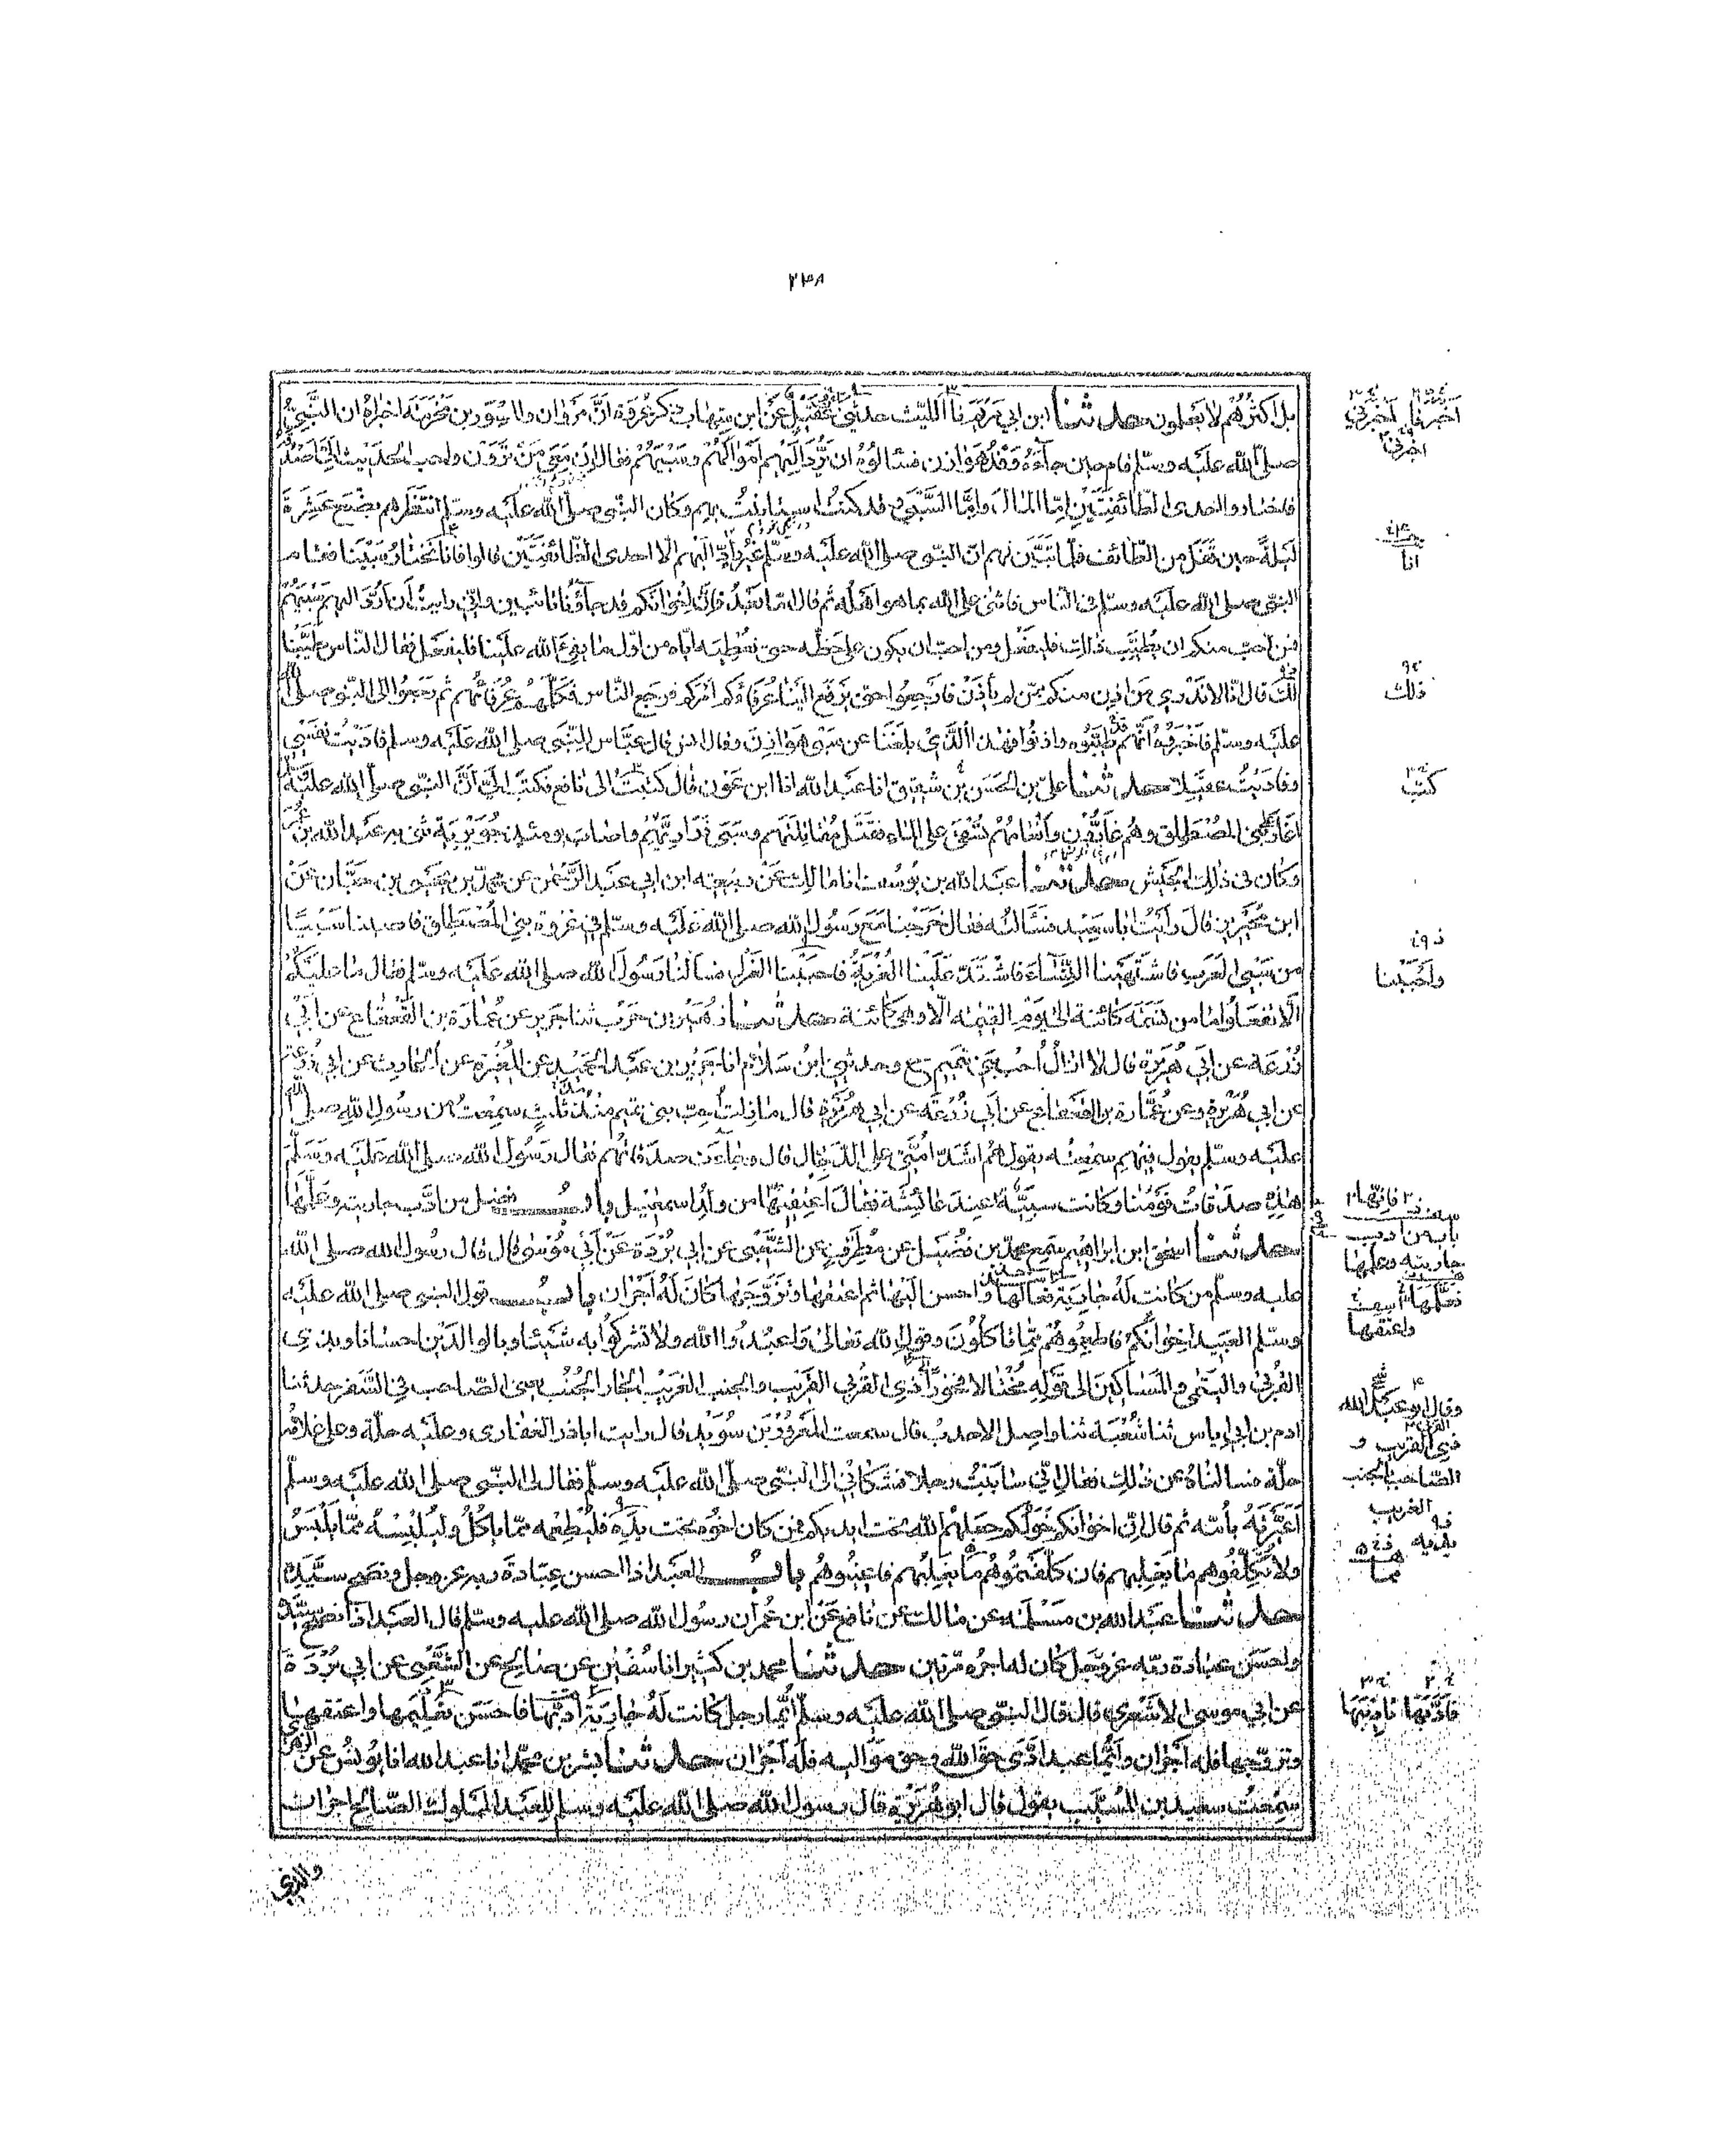 ٢٣٨
بل اكثرهم لا يعلمون حدثنا ابن ابي مريم انا الليث حدثني عقيل عن ابن شهاب ذكر عروة ان مروان والمسور بن مخرمة اخبراه ان النبي
صلى الله عليه وسلم قام حين جاءه وفد هوازن فسالوه ان يرد اليهم اموالهم وسبيهم فقال ان معي من ترون واحب الحديث الي اصدقه
فاختاروا احدى الطائفتين اما المال واما السبي وقد كنت استانيت بهم وكان النبي صلى الله عليه وسلم انتظرهم بضع عشرة
ليلة حين قفل من الطائف فلما تبين لهم ان النبي صلى الله عليه وسلم غير راد اليهم الا احدى الطائفتين قالوا فانا نختار سبينا فقام
النبي صلى الله عليه وسلم في الناس فاثنى على الله بما هو اهله ثم قال اما بعد فان اخوانكم قد جاؤنا تائبين واني رايت ان ارد اليهم سبيهم
فمن احب منكم ان يطيب ذلك فليفعل ومن احب ان يكون على حظه حتى نعطيه اياه من اول ما يفيء الله علينا فليفعل فقال الناس طيبنا
لك قال انا لا ندري من اذن منكم ممن لم ياذن فارجعوا حتى يرفع الينا عرفاؤكم امركم فرجع الناس فكلمهم عرفاؤهم ثم رجعوا الى النبي صلى الله
عليه وسلم فاخبروه انهم قد طيبوه واذنوا فهذا الذي بلغنا عن سبي هوازن وقال انس قال عباس للنبي صلى الله عليه وسلم فاديت نفسي
وفاديت عقيلا حدثنا علي بن الحسن بن شقيق انا عبد الله انا ابن عون قال كتبت الى نافع فكتب الي ان النبي صلى الله عليه
اغار على بني المصطلق وهم غارون وانعامهم تسقى على الماء فقتل مقاتلتهم وسبى ذراريهم واصاب يومئذ جويرية ثني به عبد الله بن عمر
وكان في ذلك الجيش حدثنا عبد الله بن يوسف انا مالك عن ربيعة ابن ابي عبد الرحمن عن محمد بن يحيى بن حبان عن
ابن محيريز قال رايت ابا سعيد فسالته فقال خرجنا مع رسول الله صلى الله عليه وسلم في غزوة بني المصطلق فاصبنا سبيا
من سبي العرب فاشتهينا النساء فاشتدت علينا العزبة فاحببنا العزل فسالنا رسول الله صلى الله عليه وسلم فقال ما عليكم
الا تفعلوا ما من نسمة كائنة الى يوم القيمة الا وهي كائنة حدثنا زهير بن حرب ثنا جرير عن عمارة بن القعقاع عن ابي
زرعة عن ابي هريرة قال لا ازال احب بني تميم ح وحدثني ابن سلام انا جرير بن عبد الحميد عن المغيرة عن الحارث عن ابي زرعة
عن ابي هريرة وعن عمارة بن القعقاع عن ابي زرعة عن ابي هريرة قال ما زلت احب بني تميم منذ ثلث سمعت من رسول الله صلى الله
عليه وسلم يقول فيهم سمعته يقول هم اشد امتي على الدجال قال وجاءت صدقاتهم فقال رسول الله صلى الله عليه وسلم
هذه صدقات قومنا وكانت سبية عند عائشة فقال اعتقيها من ولد اسمعيل باب فضل من ادب جاريته وعلمها
حدثنا اسحق ابن ابراهيم سمع محمد بن فضيل عن مطرف عن الشعبي عن ابي بردة عن ابي موسى قال قال رسول الله صلى الله
عليه وسلم من كانت له جارية فعالها واحسن اليها ثم اعتقها وتزوجها كان له اجران باب قول النبي صلى الله عليه
وسلم العبيد اخوانكم فاطعموهم مما تاكلون وقول الله تعالى واعبدوا الله ولا تشركوا به شيئا وبالوالدين احسانا وبذي
القربى واليتمى والمساكين الى قوله مختالا فخورا ذي القربى القريب والجنب الغريب الجار الجنب يعني الصاحب في السفر حدثنا
ادم بن ابي اياس ثنا شعبة ثنا واصل الاحدب قال سمعت المعرور بن سويد قال رايت اباذر الغفاري وعليه حلة وعلى غلامه
حلة فسالناه عن ذلك فقال اني ساببت رجلا فشكاني الى النبي صلى الله عليه وسلم فقال لي النبي صلى الله عليه وسلم
اعيرته بامه ثم قال ان اخوانكم خولكم جعلهم الله تحت ايديكم فمن كان اخوه تحت يده فليطعمه مما ياكل وليلبسه مما يلبس
ولا تكلفوهم ما يغلبهم فان كلفتموهم ما يغلبهم فاعينوهم باب العبد اذا احسن عبادة ربه عز وجل ونصح سيده
حدثنا عبد الله بن مسلمة عن مالك عن نافع عن ابن عمر ان رسول الله صلى الله عليه وسلم قال العبد اذا نصح سيده
واحسن عبادة ربه عز وجل كان له اجره مرتين حدثنا محمد بن كثير انا سفين عن صالح عن الشعبي عن ابي بردة
عن ابي موسى الاشعري قال قال النبي صلى الله عليه وسلم ايما رجل كانت له جارية ادبها فاحسن تعليمها واعتقها
وتزوجها فله اجران وايما عبد ادى حق الله وحق مواليه فله اجران حدثنا بشر بن محمد انا عبد الله انا يونس عن الزهري
سمعت سعيد بن المسيب يقول قال ابو هريرة قال رسول الله صلى الله عليه وسلم للعبد المملوك الصالح اجران
والذي
اخبرنا اخبرني
اخبرني
انا
ذلك
كتب
واحببنا
فانها
باب من ادب
جاريته وعلمها
فعلمها
واعتقها
وقال ابو عبد الله
ذي القربى القريب و
الصاحب الجنب
الغريب
يديه
مما
فادبها فادبها